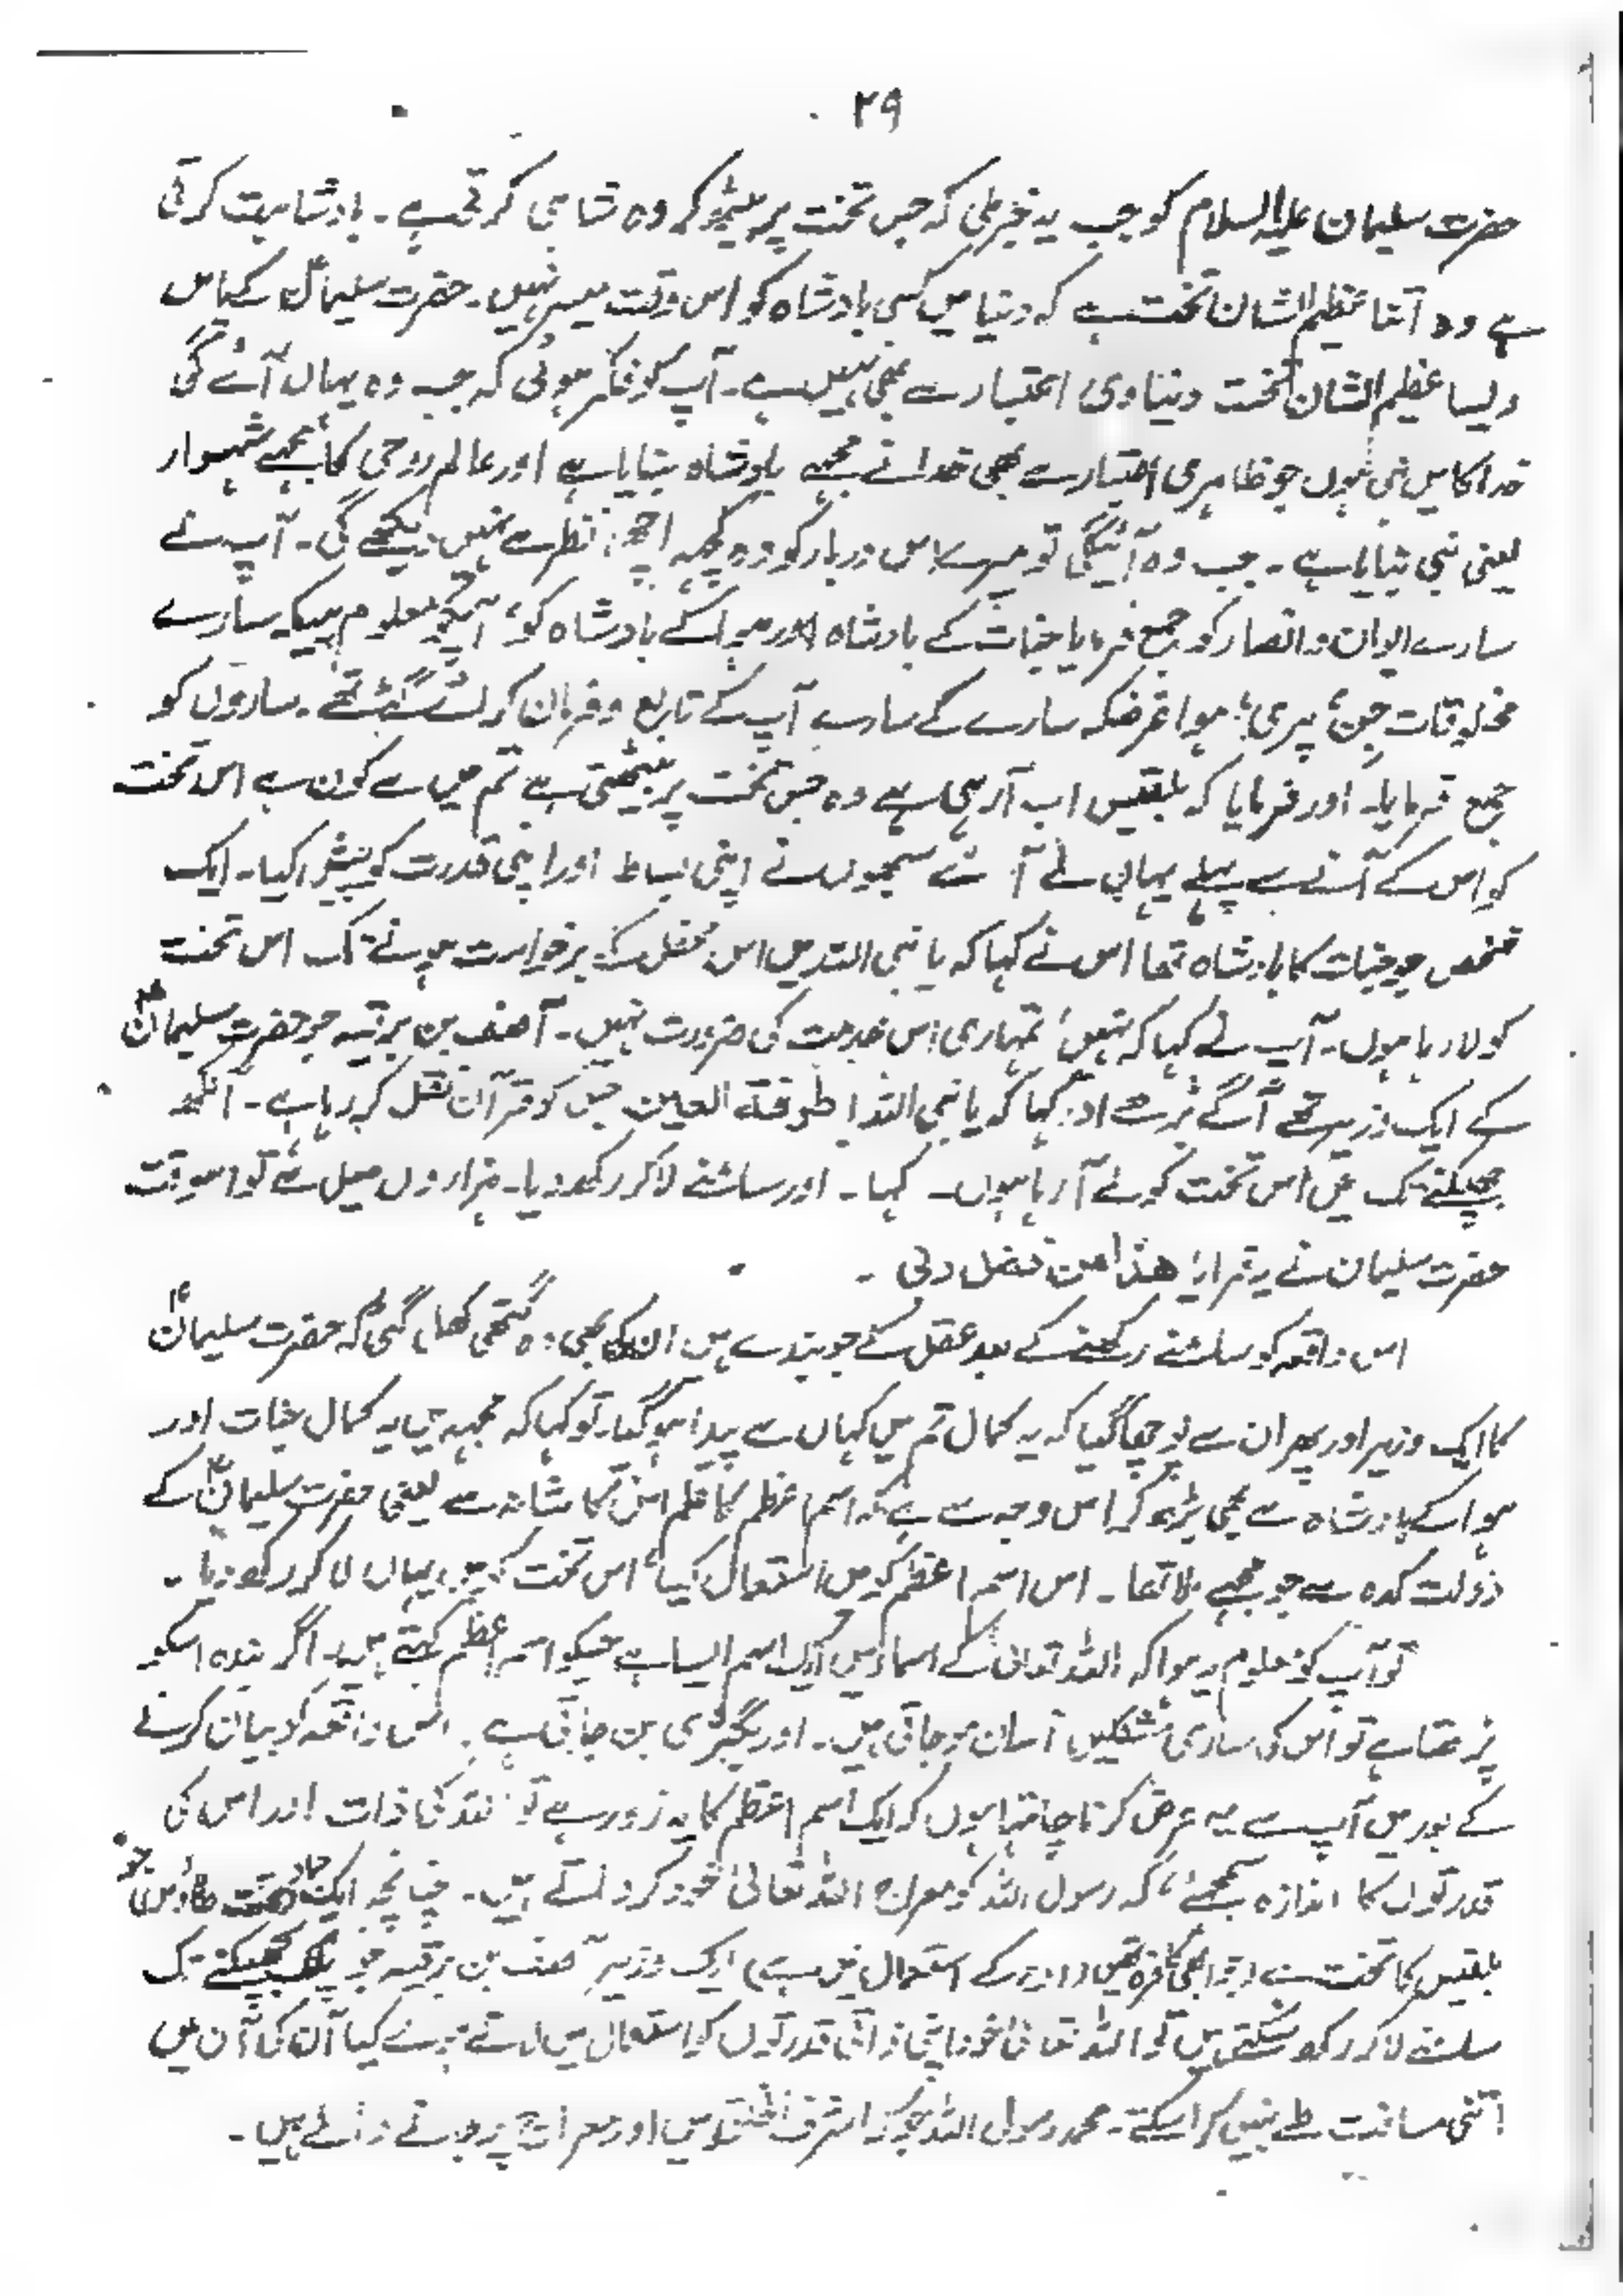 ۲۹
حضرت سلیمان علیہ السلام کو جب یہ خبر ملی کہ جس تخت پر بیٹھ کر وہ شاہی کرتی ہے۔ بادشاہت کرتی
ہے وہ اتنا عظیم الشان تخت ہے کہ دنیا میں کسی بادشاہ کو اس وقت میسر نہیں۔ حضرت سلیمانؑ کے پاس
ویسا عظیم الشان تخت دنیاوی اعتبار سے بھی نہیں ہے۔ آپ کو فکر ہوئی کہ جب وہ یہاں آئے گی
خدا کا میں نبی ہوں جو ظاہری اعتبار سے بھی خدا نے مجھے بادشاہ بنایا ہے اور عالم روحی کا مجھے شہسوار
یعنی نبی بنایا ہے۔ جب وہ آئیگی تو میرے اس دربار کو وہ کچھ اچھی نظر سے نہیں دیکھے گی۔ آپ نے
سارے اعوان و انصار کو جمع فرمایا جنات کے بادشاہ اور ہوا کے بادشاہ کو، آپکو معلوم ہیکہ سارے
مخلوقات جن، پری، ہوا غرضکہ سارے کے سارے آپ کے تابع و فرمان کر لئے گئے تھے۔ ساروں کو
جمع فرمایا۔ اور فرمایا کہ بلقیس اب آرہی ہے وہ جس تخت پر بیٹھتی ہے تم میں سے کون ہے اس تخت
کو اس کے آنے سے پہلے یہاں لے آئے سبھوں نے اپنی بساط اور اپنی قدرت کو پیش کیا۔ ایک
شخص جو جنات کا بادشاہ تھا اس نے کہا کہ یا نبی اللہ میں اس محفل کے برخواست ہونے تک اس تخت
کو لا رہا ہوں۔ آپ نے کہا کہ نہیں، تمہاری اس خدمت کی ضرورت نہیں۔ آصف بن برقیہ جو حضرت سلیمانؑ
کے ایک وزیر تھے آگے بڑھے اور کہا کہ یا نبی اللہ! طرفۃ العین جس کو قرآن نقل کر رہا ہے۔ آنکھ
جھپکنے تک میں اس تخت کو لے آ رہا ہوں۔ کہا۔ اور سامنے لا کر رکھ دیا۔ ہزاروں میل سے تو اسوقت
حضرت سلیمان نے یہ فرمایا، ھذا من فضل ربی۔
اس واقعہ کو سامنے رکھنے کے بعد عقل کے جو بندے ہیں ان کو بھی وہ گتھی کھل گئی کہ حضرت سلیمانؑ
کا ایک وزیر اور پھر ان سے پوچھا گیا کہ یہ کمال تم میں کہاں سے پیدا ہو گیا۔ تو کہا کہ مجھ میں یہ کمال جنات اور
ہوا کے بادشاہ سے بھی بڑھ کر اس وجہ سے ہے کہ اسم اعظم کا علم اس کاشانہ سے یعنی حضرت سلیمانؑ کے
دولت کدہ سے جو مجھے ملا تھا۔ اس اسم اعظم کو میں استعمال کیا، اس تخت کو میں یہاں لا کر رکھ دیا۔
تو آپ کو معلوم یہ ہوا کہ اللہ تعالیٰ کے اسماء میں ایک اسم ایسا ہے جسکو اسم اعظم کہتے ہیں۔ اگر بندہ اسکو
پڑھتا ہے تو اس کی ساری مشکلیں آسان ہو جاتی ہیں۔ اور بگڑی بن جاتی ہے۔ اس واقعہ کو بیان کرنے
کے بعد میں آپ سے یہ عرض کرنا چاہتا ہوں کہ ایک اسم اعظم کا یہ زور ہے تو خدا کی ذات اور اس کی
قدرتوں کا اندازہ سمجھئے، کہ رسول اللہ کو معراج اللہ تعالیٰ خود کرواتے ہیں۔ چنانچہ ایک تخت طاؤس جو
بلقیس کا تخت ہے (جو ابھی کافرہ تھیں اور ان کے استعمال میں ہے) ایک وزیر آصف بن برقیہ جو پلک جھپکنے تک
سامنے لا کر رکھ سکتے ہیں تو اللہ تعالیٰ خود اپنی ذاتی قدرتوں کو استعمال میں لاتے ہوئے کیا آن کی آن میں
اتنی مسافت طے نہیں کرا سکتے۔ محمد رسول اللہ جو کہ اشرف الخلق ہیں اور معراج پر جانے والے ہیں۔